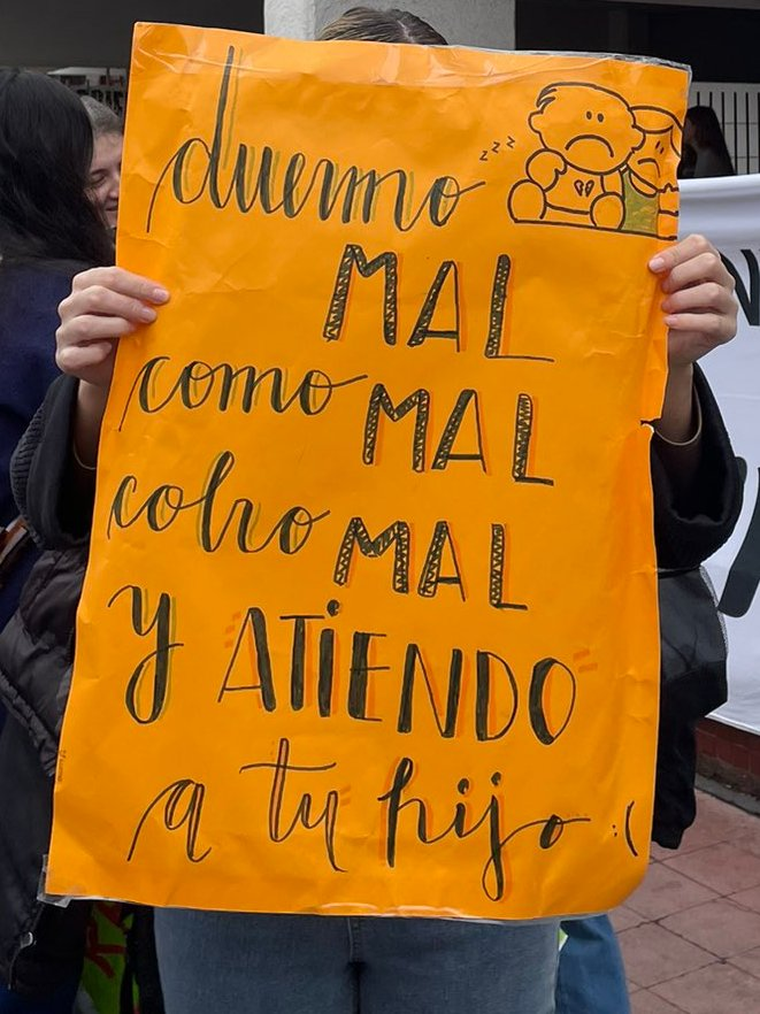 duermo
zzz
MAL
como MAL
cobro MAL
y "ATIENDO"
a tu hijo :(